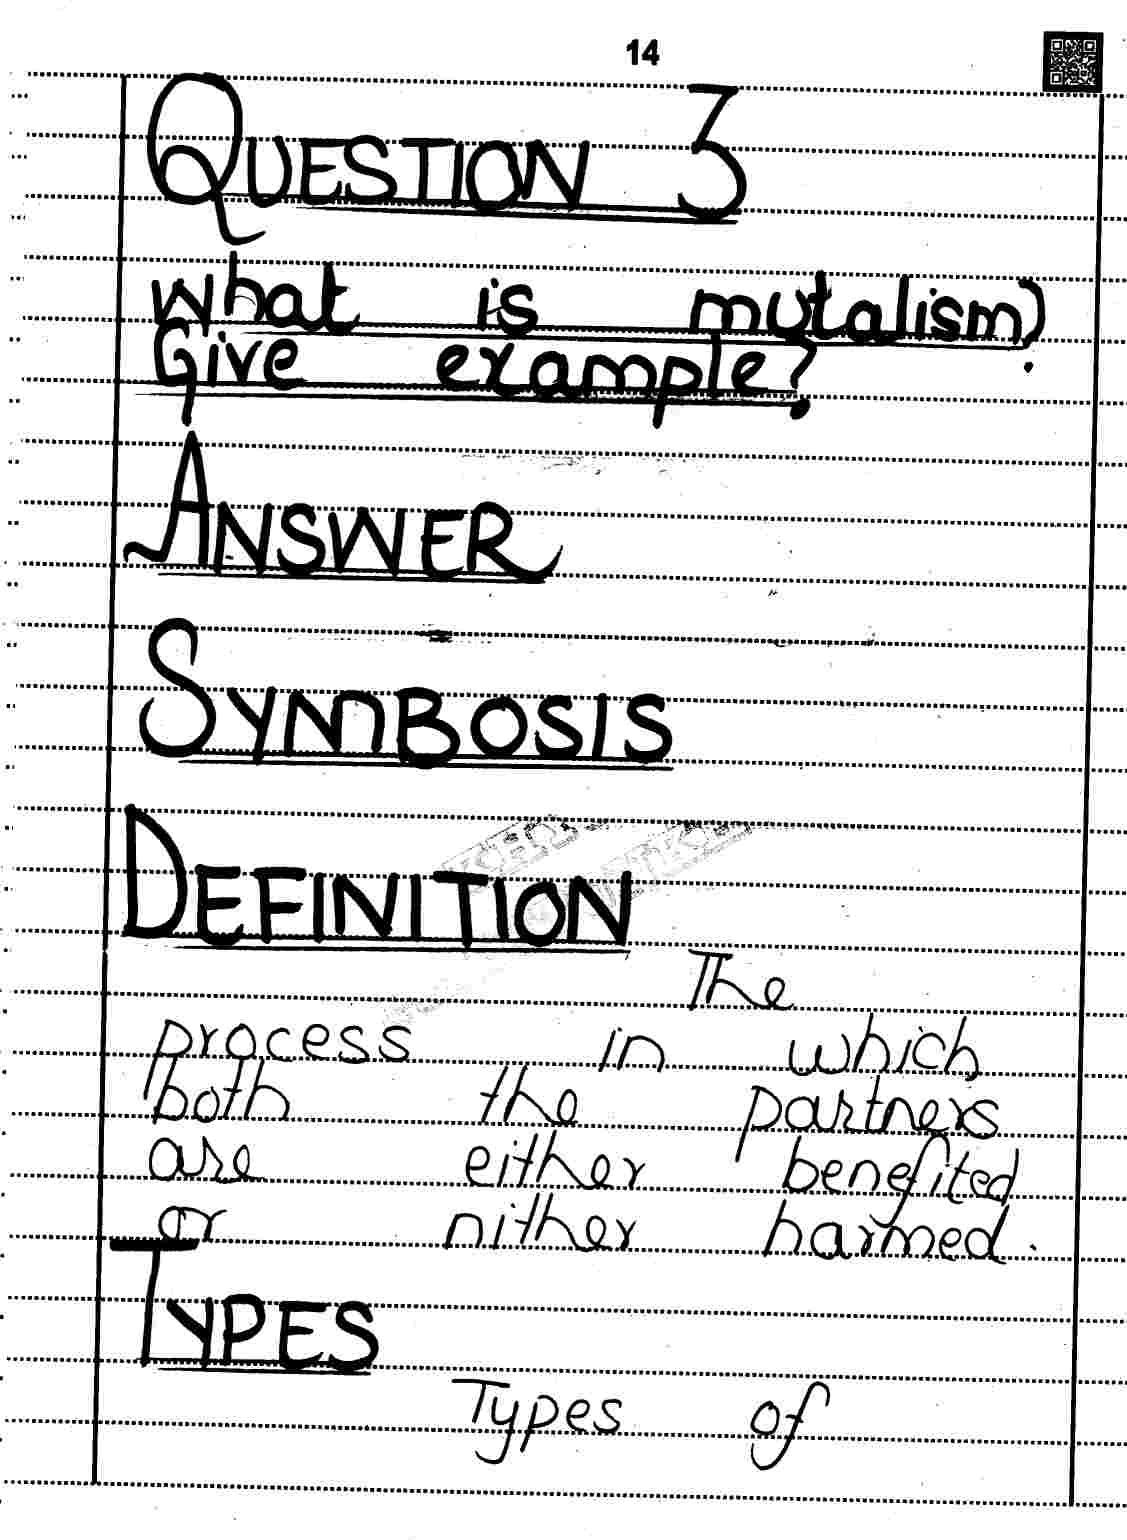 14
QUESTION 3
What is mutalism?
Give example?
ANSWER
SYMBOSIS
DEFINITION
The
process in which
both the partners
are either benefited
or nither harmed.
TYPES
Types of